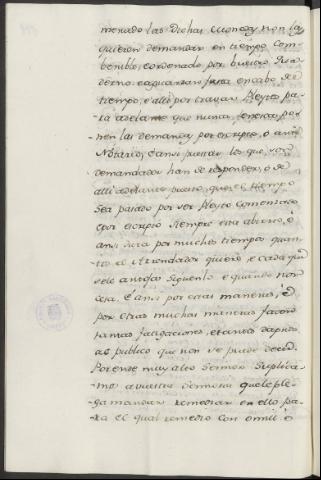 menzado las dichas
quieren demandar en tiempo con-
benible, é ordenado por buscar
é aguardan fasta en cabo de
tiempo, é alli por travar Pleyto pa-
ra adelante que nunca fenezca, po-
nen las demandas por escripto, ó ante
Notario, é ansi pasan los que son
demandados han de responder, é de
alli adelante puesto, que el tiempo
sea pasado por ser Pleyto comenzado
por escripto siempre esta abierto, é
ansi dura por muchos tiempos quan-
to el Arrendador quiere, é cada que
se le antoja siguenlo é quando non
cesa. E ansi por estas maneras, é
por otras muchas maneras facen
tantas fatigaciones, é tantos daños
al publico que non se puede decir.
Porende muy alto Señor Suplica-
mos a vuestra Señoria que le ple-
ga mandar remediar en ello pa-
ra el qual remedio con omill